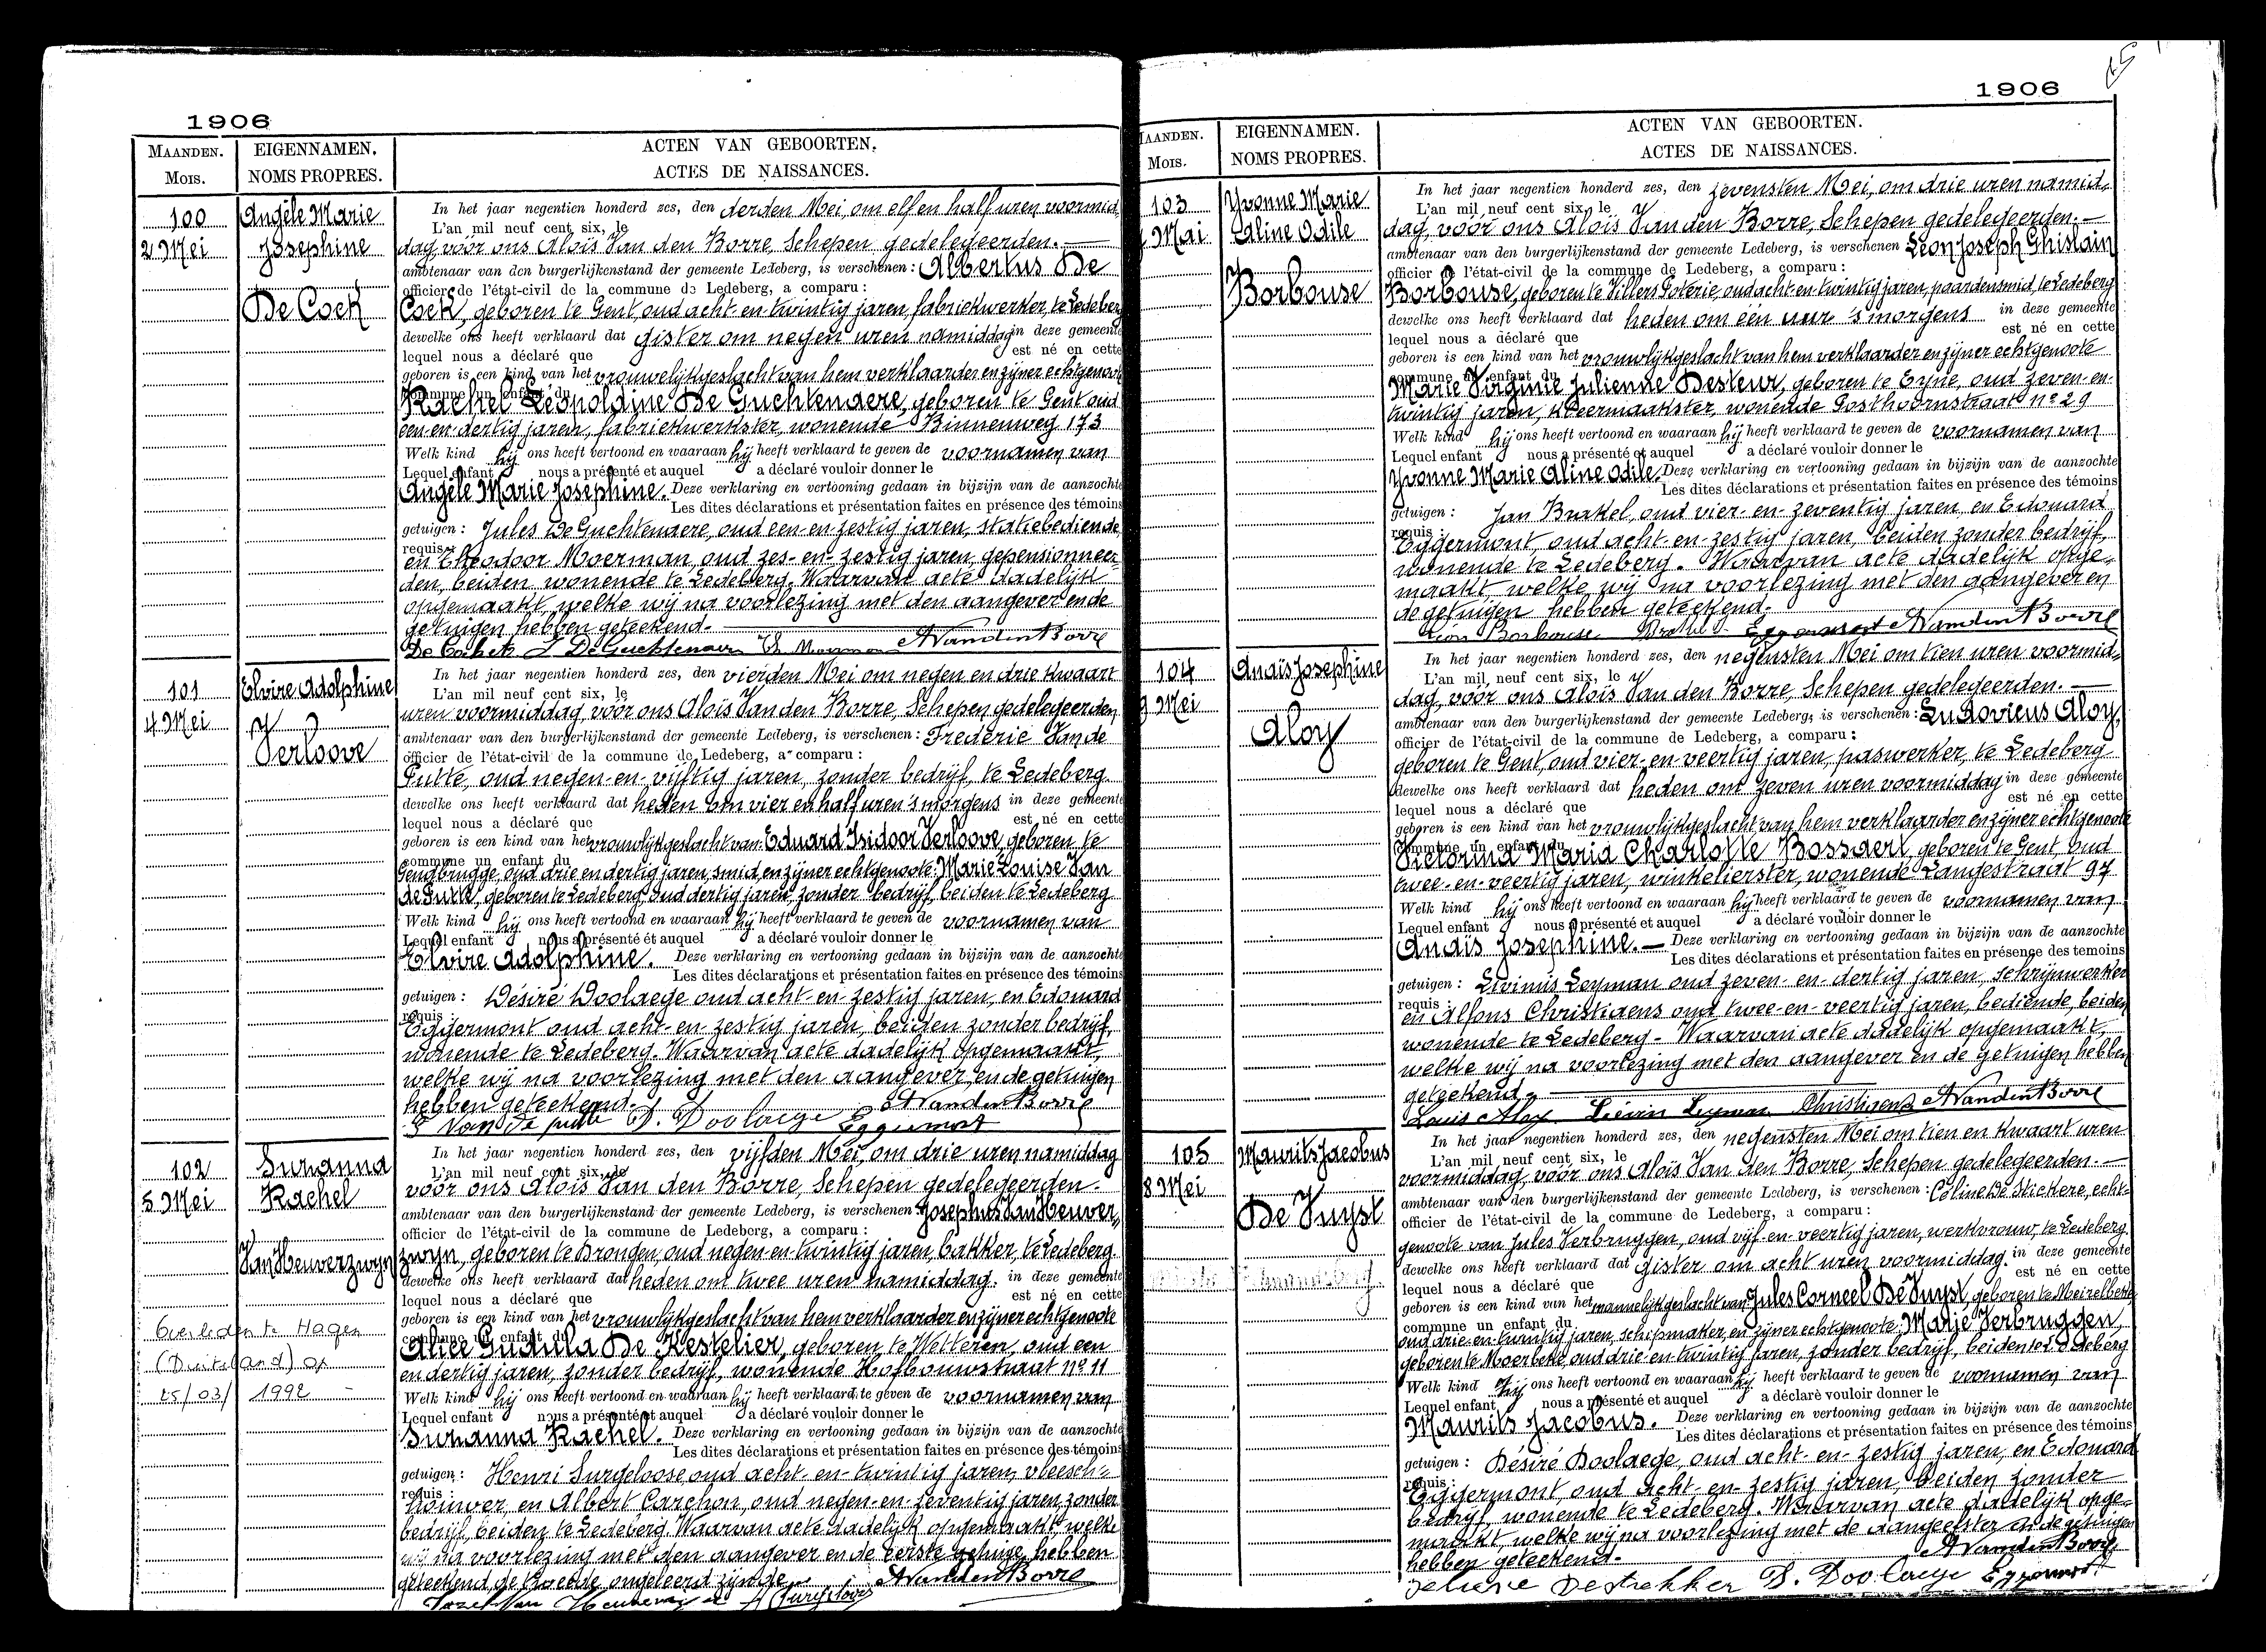 1906
MAANDEN.
Mois.
EIGENNAMEN.
NOMS PROPRES.
ACTEN VAN GEBOORTEN.
ACTES DE NAISSANCES.
100
2 Mei
Angèle Marie
Josephine
De Cock
In het jaar negentien honderd zes, den derden Mei, om elf en half uren voormid
L'an mil neuf cent six, le
dag, vóór ons Aloïs Van den Borre, Schepen gedelegeerden.
ambtenaar van den burgerlijkenstand der gemeente Ledeberg, is verschenen: Albertus De
officier de l'état-civil de la commune de Ledeberg, a comparu:
Cock, geboren te Gent, oud acht-en-twintig jaren, fabriekwerker, te Ledeberg
dewelke ons heeft verklaard dat gister om negen uren namiddag in deze gemeente
lequel nous a déclaré que est né en cette
geboren is een kind van het vrouwelijk geslacht van hem verklaarder en zijner echtgenoote
commune un enfant du
Rachel Leopoldine De Guchtenaere, geboren te Gent oud
een-en-dertig jaren, fabriekwerkster, wonende Binnenweg 173
Welk kind hij ons heeft vertoond en waaraan hij heeft verklaard te geven de voornamen van
Lequel enfant nous a présenté et auquel a déclaré vouloir donner le
Angèle Marie Josephine. Deze verklaring en vertooning gedaan in bijzijn van de aanzochte
Les dites déclarations et présentation faites en présence des témoins
getuigen: Jules De Guchtenaere, oud een-en-zestig jaren, statiebediende
requis:
en Theodoor Moerman, oud zes-en-zestig jaren, gepensionneer-
den, beiden wonende te Ledeberg. Waarvan acte dadelijk
opgemaakt, welke wij na voorlezing met den aangever en de
getuigen hebben geteekend.
De Guchtenaere AVandenBorre
101
4 Mei
Elvire Adolphine
Verloove
In het jaar negentien honderd zes, den vierden Mei om negen en drie kwaart
L'an mil neuf cent six, le
uren voormiddag, vóór ons Aloïs Van den Borre, Schepen gedelegeerden
ambtenaar van den burgerlijkenstand der gemeente Ledeberg, is verschenen: Frederic Van de
officier de l'état-civil de la commune de Ledeberg, a comparu:
Putte, oud negen-en-vijftig jaren, zonder bedrijf, te Ledeberg
dewelke ons heeft verklaard dat heden om vier en half uren 's morgens in deze gemeente
lequel nous a déclaré que est né en cette
geboren is een kind van het vrouwlijk geslacht van Eduard Isidoor Verloove, geboren te
commune un enfant du
Gendbrugge, oud drie en dertig jaren, smid, en zijner echtgenoote: Marie Louise Van
de Putte, geboren te Ledeberg, oud dertig jaren, zonder bedrijf, beiden te Ledeberg
Welk kind hij ons heeft vertoond en waaraan hij heeft verklaard te geven de voornamen van
Lequel enfant nous a présenté et auquel a déclaré vouloir donner le
Elvire Adolphine. Deze verklaring en vertooning gedaan in bijzijn van de aanzochte
Les dites déclarations et présentation faites en présence des témoins
getuigen: Désiré Doolaege oud acht-en-zestig jaren, en Edouard
requis:
Eggermont oud acht-en-zestig jaren, beiden zonder bedrijf,
wonende te Ledeberg. Waarvan acte dadelijk opgemaakt,
welke wij na voorlezing met den aangever, en de getuigen
hebben geteekend. AVandenBorre
F Van de putte D. Doolaege Eggermont
102
5 Mei
Suzanna
Rachel
Van Heuverzwyn
Overleden te Hagen
(Duitsland) op
25/03/1992
In het jaar negentien honderd zes, den vijfden Mei, om drie uren namiddag
L'an mil neuf cent six, le
vóór ons Aloïs Van den Borre, Schepen gedelegeerden.
ambtenaar van den burgerlijkenstand der gemeente Ledeberg, is verschenen: Josephus Van Heuver
officier de l'état-civil de la commune de Ledeberg, a comparu:
zwyn, geboren te Drongen, oud negen-en-twintig jaren, bakker, te Ledeberg
dewelke ons heeft verklaard dat heden om twee uren namiddag. in deze gemeente
lequel nous a déclaré que est né en cette
geboren is een kind van het vrouwlijk geslacht van hem verklaarder en zijner echtgenoote
commune un enfant du
Alice Gudula De Kestelier, geboren te Wetteren, oud een
en dertig jaren, zonder bedrijf, wonende Hofbouwstraat nº 11
Welk kind hij ons heeft vertoond en waaraan hij heeft verklaard te geven de voornamen van
Lequel enfant nous a présenté et auquel a déclaré vouloir donner le
Suzanna Rachel. Deze verklaring en vertooning gedaan in bijzijn van de aanzochte
Les dites déclarations et présentation faites en présence des témoins
getuigen: Henri Surgeloose, oud acht-en-twintig jaren, vleesch-
requis:
houwer, en Albert Carchon, oud negen-en-zeventig jaren, zonder
bedrijf, beiden te Ledeberg. Waarvan acte dadelijk opgemaakt, welke
wij na voorlezing met den aangever en de eerste getuige hebben
geteekend de tweede ongeleerd zijnde. AVandenBorre
1906
MAANDEN.
Mois.
EIGENNAMEN.
NOMS PROPRES.
ACTEN VAN GEBOORTEN.
ACTES DE NAISSANCES.
103
Mai
Yvonne Marie
Aline Odile
Borbouse
In het jaar negentien honderd zes, den zevensten Mei, om drie uren namid-
L'an mil neuf cent six, le
dag, vóór ons Aloïs Van den Borre, Schepen gedelegeerden.
ambtenaar van den burgerlijkenstand der gemeente Ledeberg, is verschenen Léon Joseph Ghislain
officier de l'état-civil de la commune de Ledeberg, a comparu:
Borbouse, geboren te Villers Poterie, oud acht-en-twintig jaren, paardensmid, te Ledeberg
dewelke ons heeft verklaard dat heden om een uur 's morgens in deze gemeente
lequel nous a déclaré que est né en cette
geboren is een kind van het vrouwlijk geslacht van hem verklaarder en zijner echtgenoote
commune un enfant du
Marie Virginie Julienne Desteur, geboren te Eyne, oud zeven-en-
twintig jaren, kleermaakster, wonende Posthoornstraat nº 29
Welk kind hij ons heeft vertoond en waaraan hij heeft verklaard te geven de voornamen van
Lequel enfant nous a présenté et auquel a déclaré vouloir donner le
Yvonne Marie Aline Odile. Deze verklaring en vertooning gedaan in bijzijn van de aanzochte
Les dites déclarations et présentation faites en présence des témoins
getuigen: Jan Brakel, oud vier-en-zeventig jaren, en Edouard
requis:
Eggermont, oud acht-en-zestig jaren, beiden zonder bedrijf,
wonende te Ledeberg. Waarvan acte dadelijk opge-
maakt, welke wij na voorlezing met den aangever en
de getuigen hebben geteekend.
Léon Borbouse Eggermont AVandenBorre
104
9 Mei
Anaïs Josephine
Aloy
In het jaar negentien honderd zes, den negensten Mei om tien uren voormid-
L'an mil neuf cent six, le
dag, vóór ons Aloïs Van den Borre, Schepen gedelegeerden.
ambtenaar van den burgerlijkenstand der gemeente Ledeberg, is verschenen: Ludovicus Aloy,
officier de l'état-civil de la commune de Ledeberg, a comparu:
geboren te Gent, oud vier-en-veertig jaren, paswerker, te Ledeberg
dewelke ons heeft verklaard dat heden om zeven uren voormiddag in deze gemeente
lequel nous a déclaré que est né en cette
geboren is een kind van het vrouwlijk geslacht van hem verklaarder en zijner echtgenoote
commune un enfant du
Victorina Maria Charlotte Bossaert, geboren te Gent, oud
twee-en-veertig jaren, winkelierster, wonende Langestraat 97
Welk kind hij ons heeft vertoond en waaraan hij heeft verklaard te geven de voornamen van
Lequel enfant nous a présenté et auquel a déclaré vouloir donner le
Anaïs Josephine. Deze verklaring en vertooning gedaan in bijzijn van de aanzochte
Les dites déclarations et présentation faites en présence des temoins
getuigen: Livinus Leyman oud zeven-en-dertig jaren, schrijnwerker
requis:
en Alfons Christiaens oud twee-en-veertig jaren, bediende, beiden
wonende te Ledeberg. Waarvan acte dadelijk opgemaakt,
welke wij na voorlezing met den aangever en de getuigen hebben
geteekend.
Louis Aloy Liévin Leyman Christiaens AVandenBorre
105
8 Mei
Maurits Jacobus
De Vuyst
In het jaar negentien honderd zes, den negensten Mei om tien en kwaart uren
L'an mil neuf cent six, le
voormiddag, vóór ons Aloïs Van den Borre, Schepen gedelegeerden.
ambtenaar van den burgerlijkenstand der gemeente Ledeberg, is verschenen: Celine De Stickere, echt-
officier de l'état-civil de la commune de Ledeberg, a comparu:
genoote van Jules Verbruggen, oud vijf-en-veertig jaren, werkvrouw, te Ledeberg
dewelke ons heeft verklaard dat gister om acht uren voormiddag. in deze gemeente
lequel nous a déclaré que est né en cette
geboren is een kind van het mannelijk geslacht van Jules Corneel De Vuyst, geboren te Meirelbeke
commune un enfant du
oud drie-en-twintig jaren, schipmaker, en zijner echtgenoote: Marie Verbruggen,
geboren te Moerbeke, oud drie-en-twintig jaren, zonder bedrijf, beiden te Ledeberg
Welk kind hij ons heeft vertoond en waaraan hij heeft verklaard te geven de voornamen van
Lequel enfant nous a présenté et auquel a déclaré vouloir donner le
Maurits Jacobus. Deze verklaring en vertooning gedaan in bijzijn van de aanzochte
Les dites déclarations et présentation faites en présence des témoins
getuigen: Désiré Doolaege, oud acht-en-zestig jaren, en Edouard
requis:
Eggermont, oud acht-en-zestig jaren, beiden zonder
bedrijf, wonende te Ledeberg. Waarvan acte dadelijk opge-
maakt welke wij na voorlezing met de aangeefster en de getuigen
hebben geteekend. AVandenBorre
D. Doolaege Eggermont